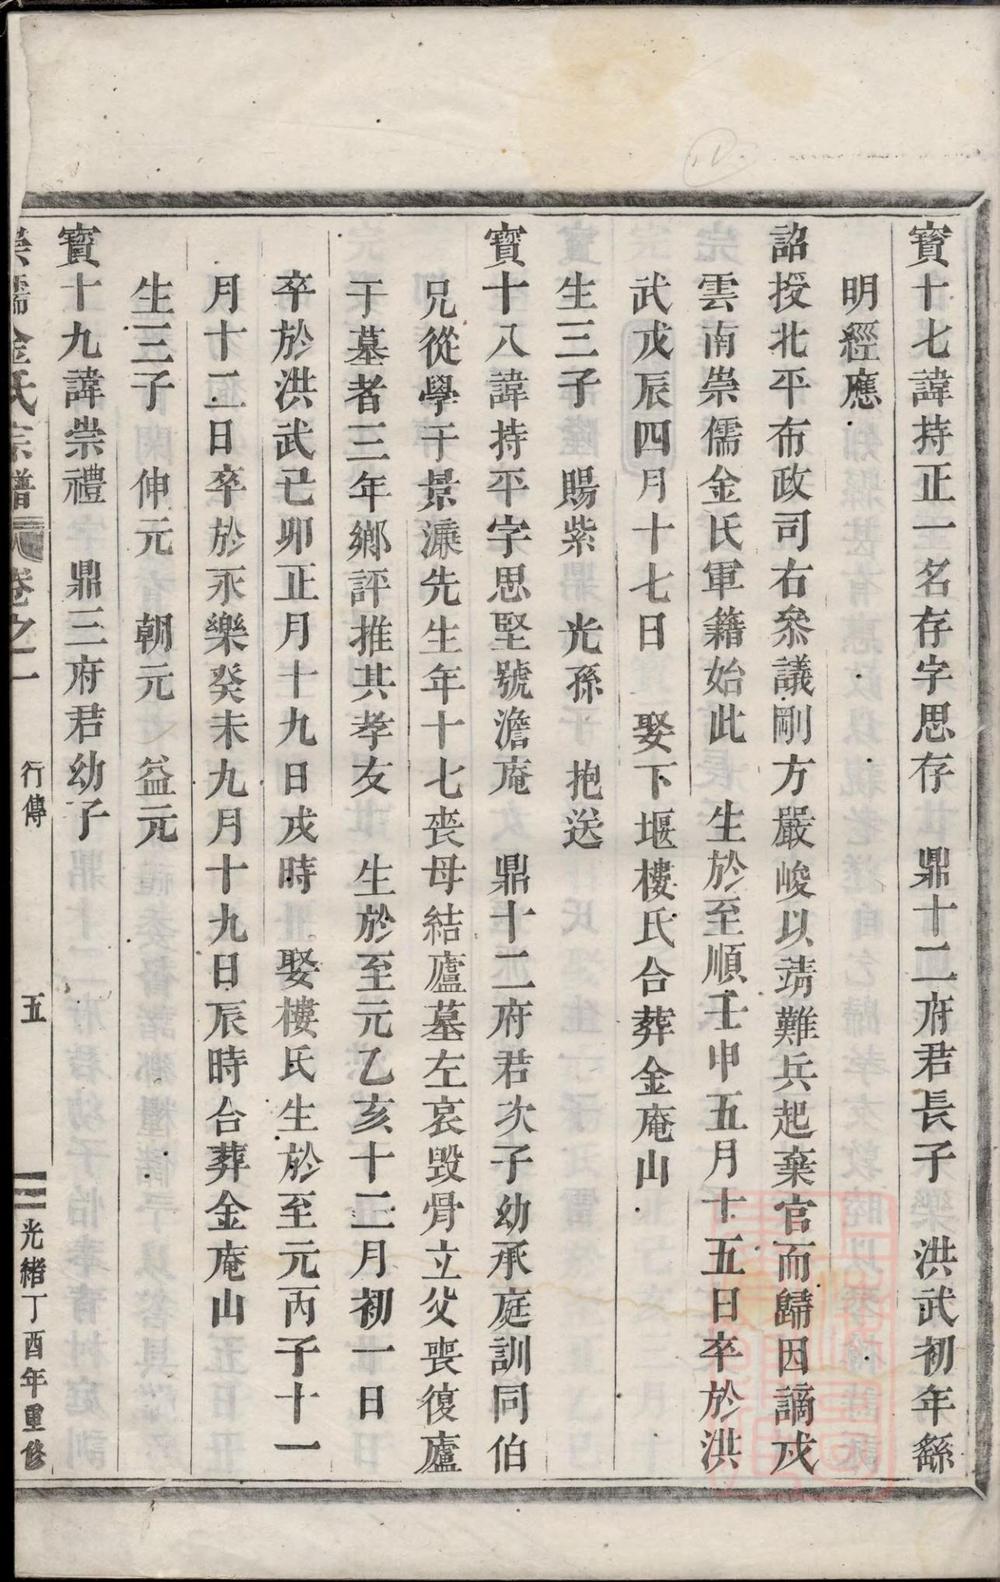 寳十七諱持正一名存字思存　鼎十二府君長子　洪武初年繇
明經應
詔授北平布政司右叅議剛方嚴峻以靖難兵起棄官而歸因謫戍
雲南崇儒金氏軍籍始此　生於至順壬申五月十五日卒於洪
武戊辰四月十七日　娶下堰樓氏合葬金庵山
生三子　賜紫　光孫　抱送
寳十八諱持平字思堅號澹庵　鼎十二府君次子幼承庭訓同伯
兄從學于景濂先生年十七喪母結廬墓左哀毀骨立父喪復廬
于墓者三年鄉評推其孝友　生於至元乙亥十二月初一日
卒於洪武己卯正月十九日戌時　娶樓氏生於至元丙子十一
月十二日卒於永樂癸未九月十九日辰時合葬金庵山
生三子　伸元　朝元　益元
寳十九諱崇禮　鼎三府君幼子
崇儒金氏宗譜　卷之一　行傳　五　光緒丁酉年重修